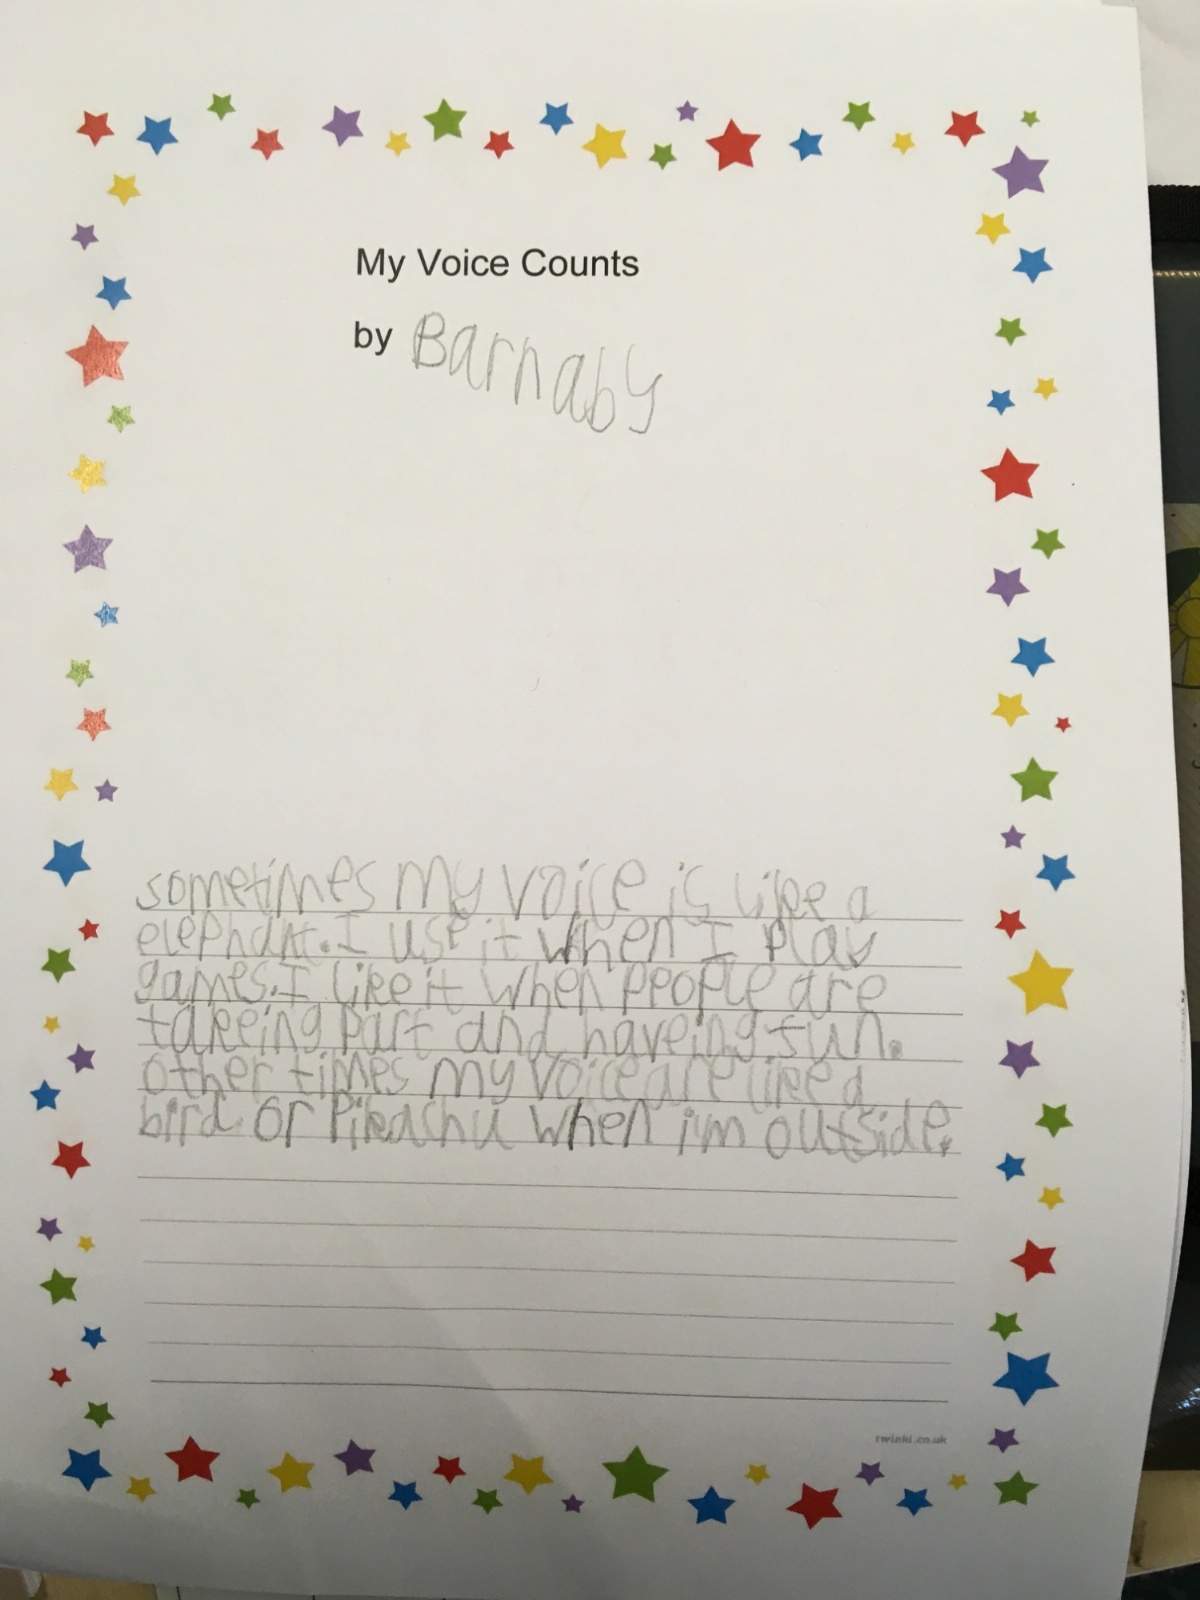 My Voice Counts
by Barnaby
sometimes my voice is like a
elephant. I use it when I play
games. I like it when people are
takeing part and haveing fun.
other times my voice are like a
bird or Pikachu when i'm outside.
twinkl.co.uk